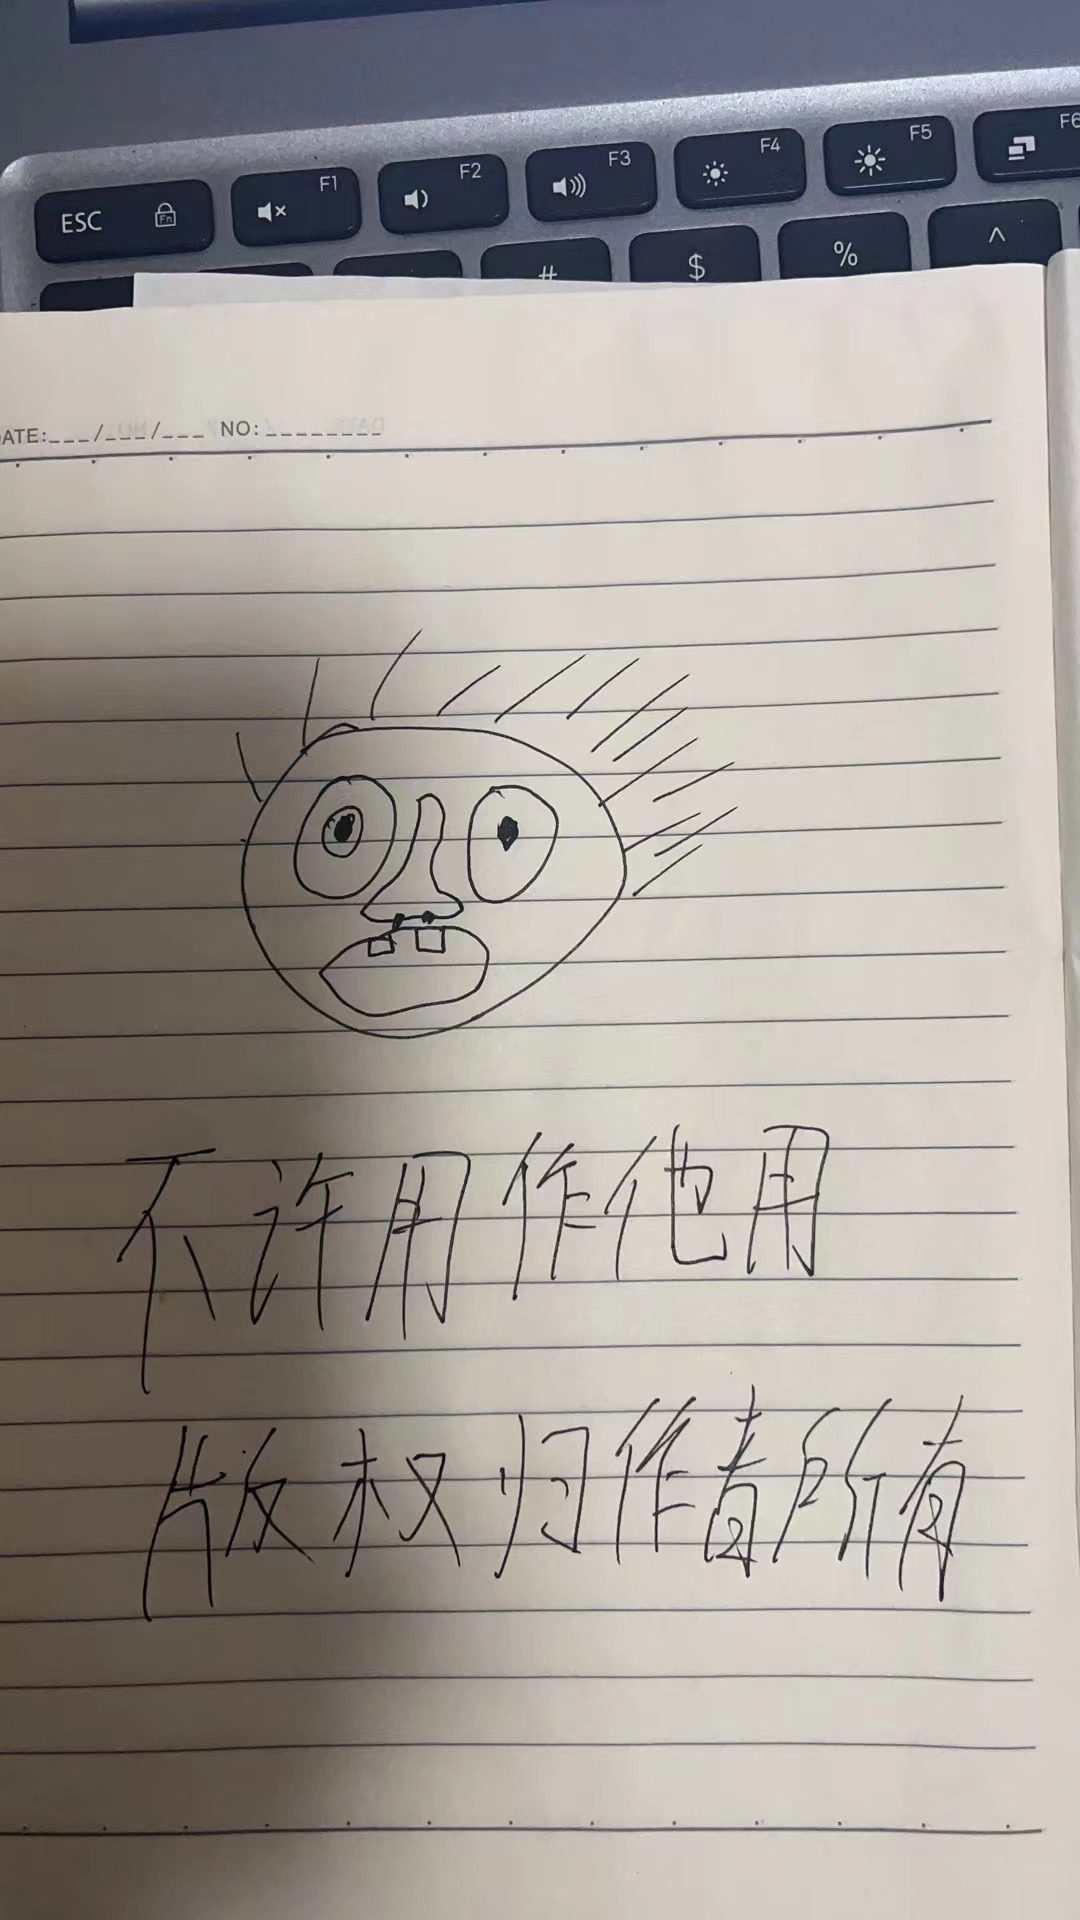 F1 F2 F3 F4 F5 F6
ESC Fn
# $ % ^
DATE:___/___/___ NO:________
不许用作他用
版权归作者所有